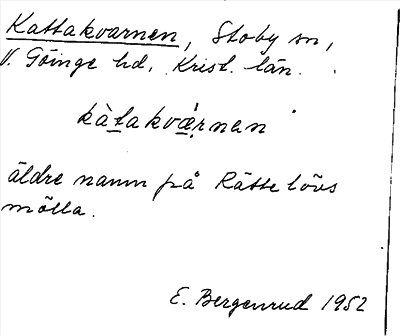 Kattakvarnen, Stoby sn,
V. Göinge hd, Krist. län.
kàtakvæ̀rnan
äldre namn på Rättelövs
mölla.
E. Bergenrud 1952